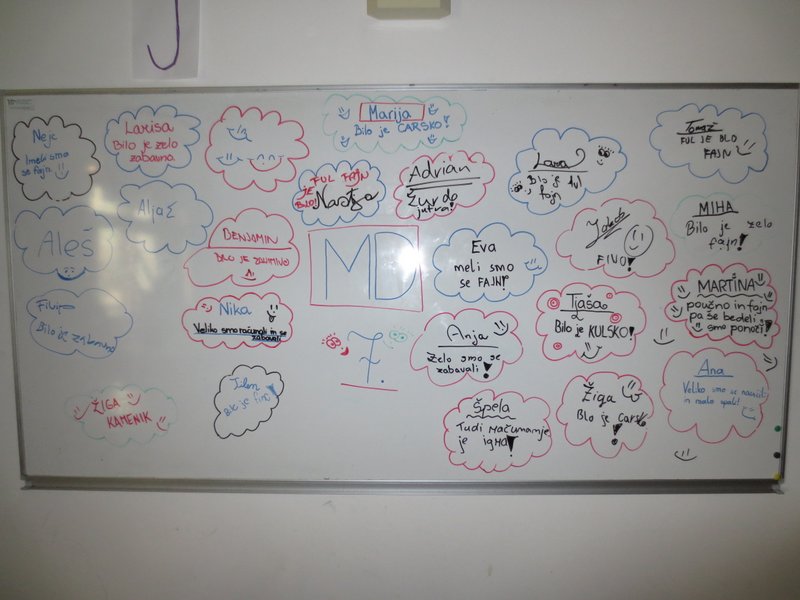 Nejc
Imeli smo
se fajn.
Larisa
Bilo je zelo
zabavno.
Marija
Bilo je CARSKO!
Lara
Bilo je ful
fajn
Tomaž
FUL JE BLO
FAJN
Aleš
Aljaž
FUL FAJN
JE
BILO!
Nataša
Adrian
Žur do
jutra!
Jakob
FINO!
MIHA
Bilo je zelo
fajn!
BENJAMIN
BILO JE ZANIMIVO
MD
Eva
meli smo
se FAJN!
Tjaša
Bilo je KULSKO!
MARTINA
poučno in fajn
pa še bedeli
smo ponoči!
Filip
Bilo je zabavno
Nika
Veliko smo računali in se
zabavali
7.
Anja
Zelo smo se
zabavali!
Ana
Veliko smo se naučili
in malo spali!
ŽIGA
KAMENIK
Bilo je fino!
Špela
Tudi računanje
je igra!
Žiga
Blo je carsko!